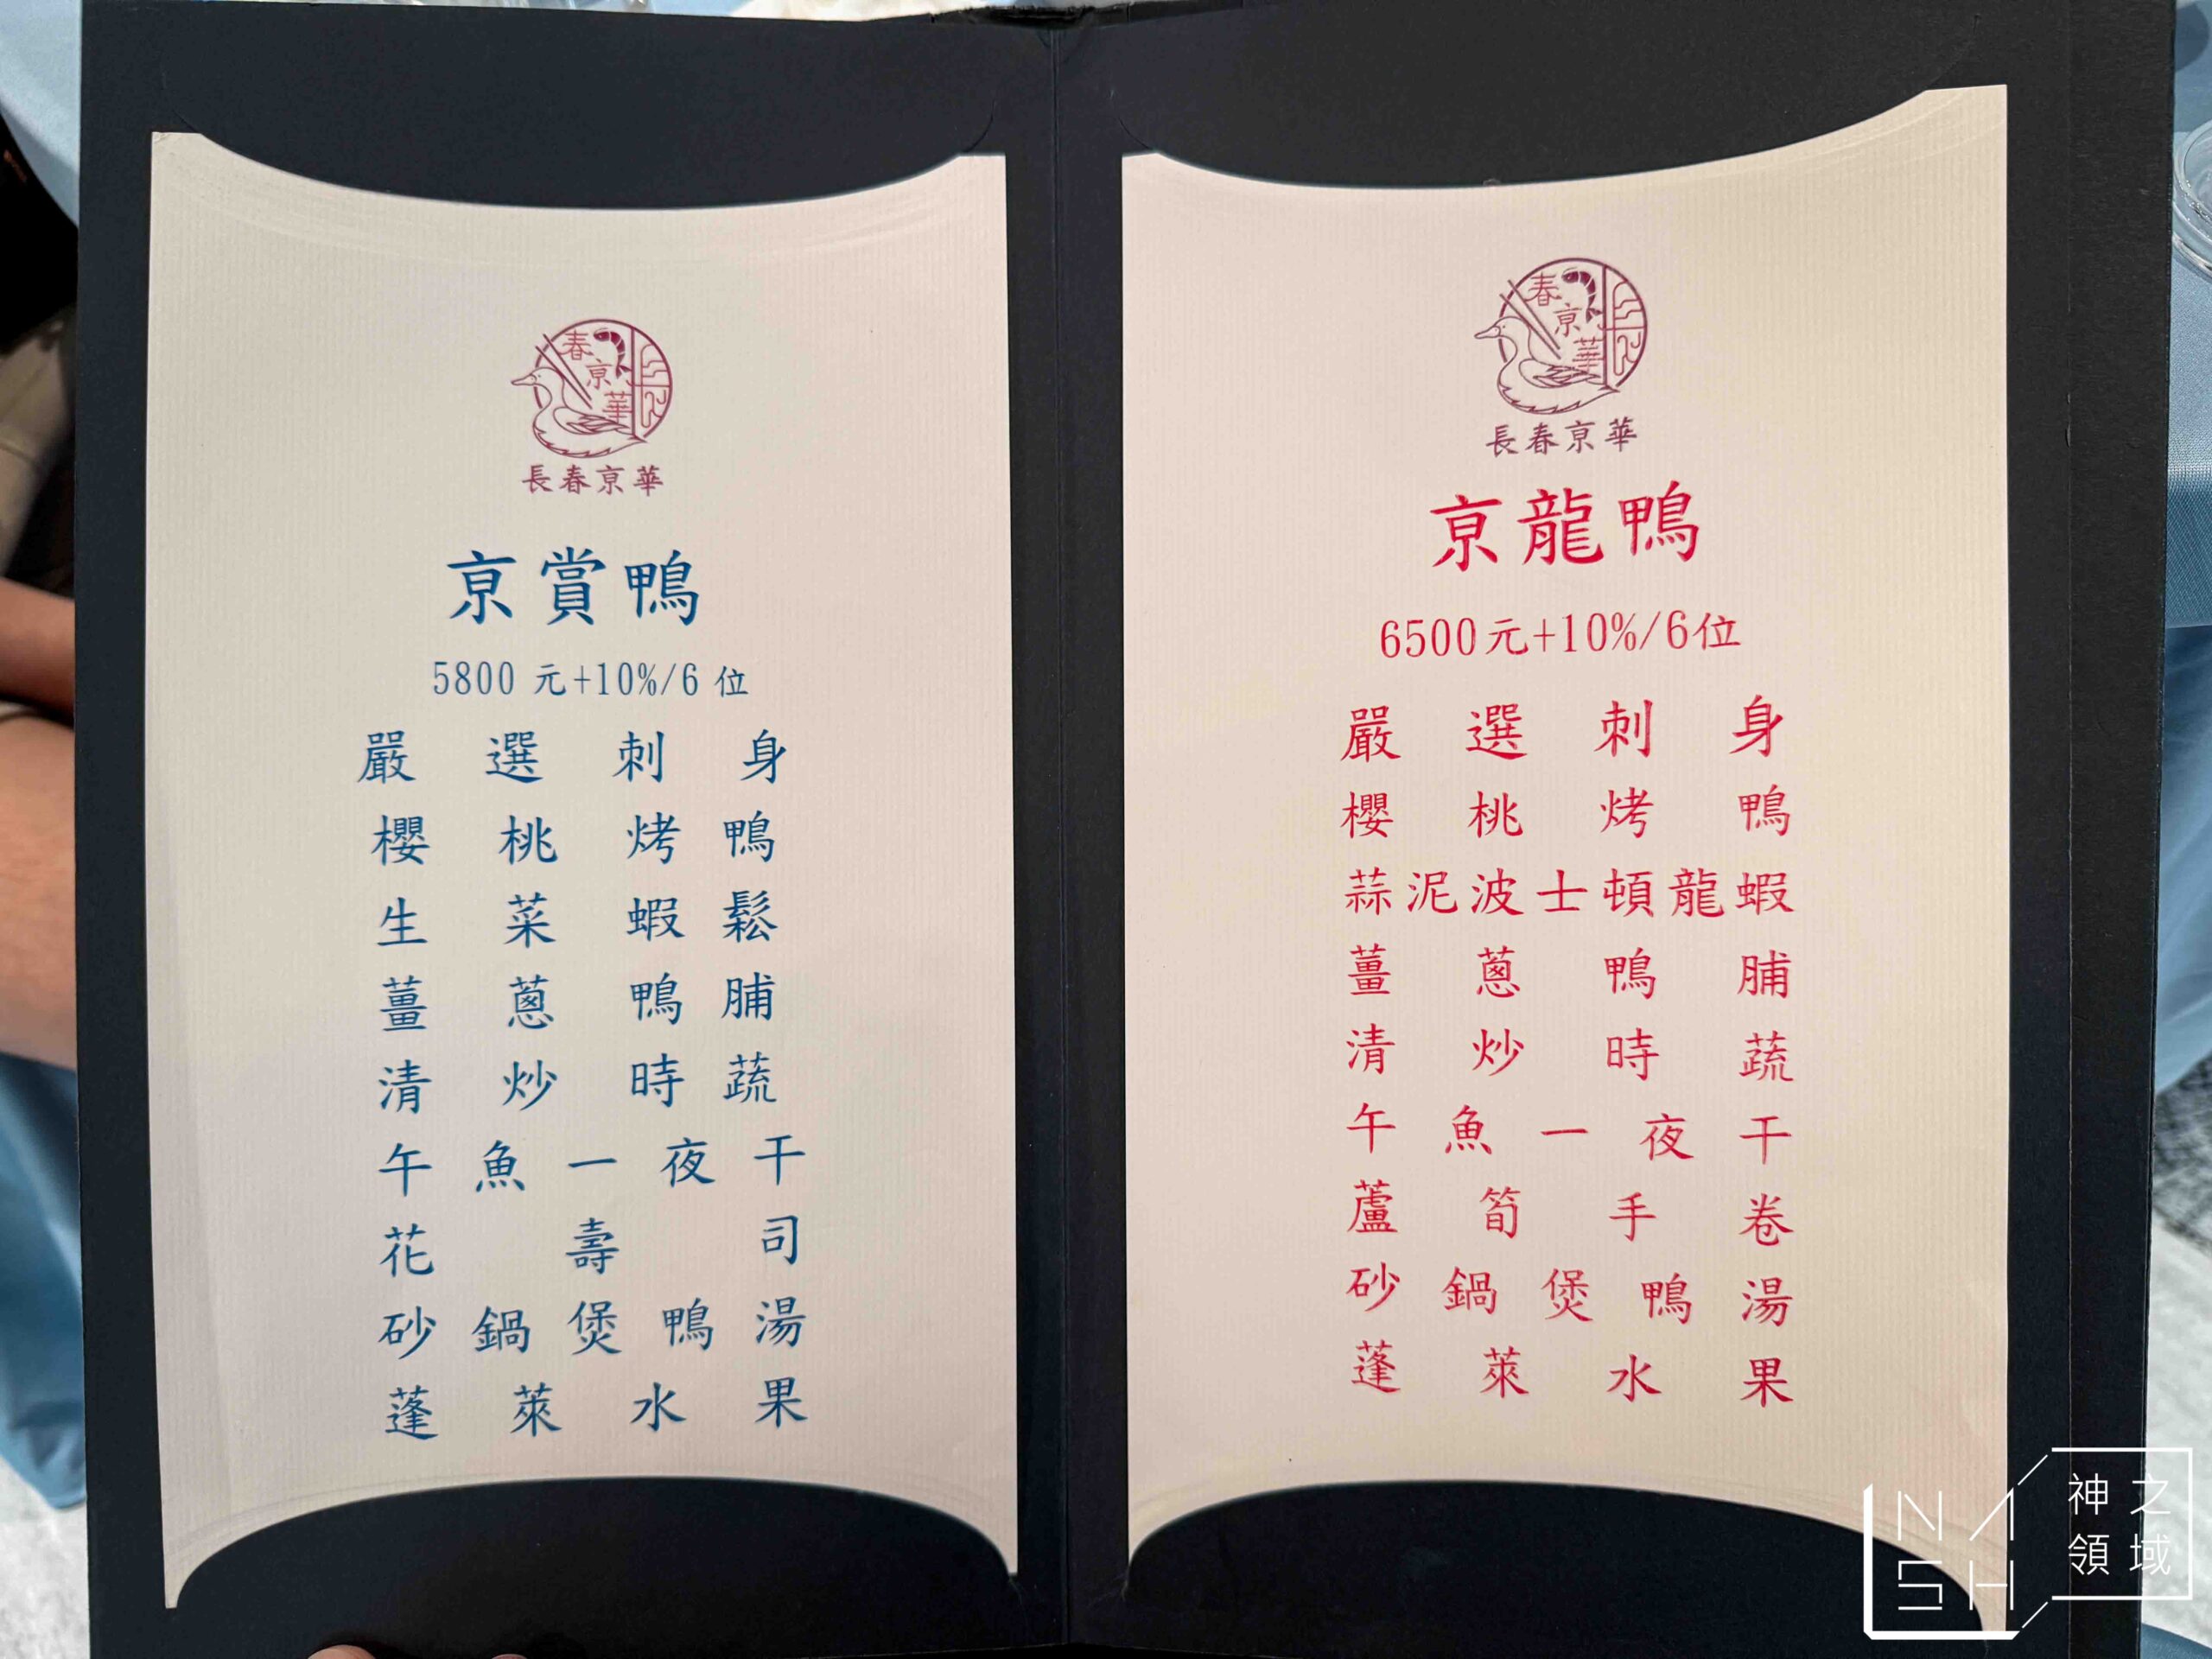 春京華
長春京華
京賞鴨
5800 元+10%/6 位
嚴選刺身
櫻桃烤鴨
生菜蝦鬆
薑蔥鴨脯
清炒時蔬
午魚一夜干
花壽司
砂鍋煲鴨湯
蓬萊水果
春京華
長春京華
京龍鴨
6500元+10%/6位
嚴選刺身
櫻桃烤鴨
蒜泥波士頓龍蝦
薑蔥鴨脯
清炒時蔬
午魚一夜干
蘆筍手卷
砂鍋煲鴨湯
蓬萊水果
NASH
神之領域